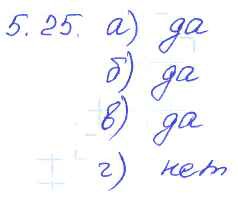 5.25. а) да
б) да
в) да
г) нет